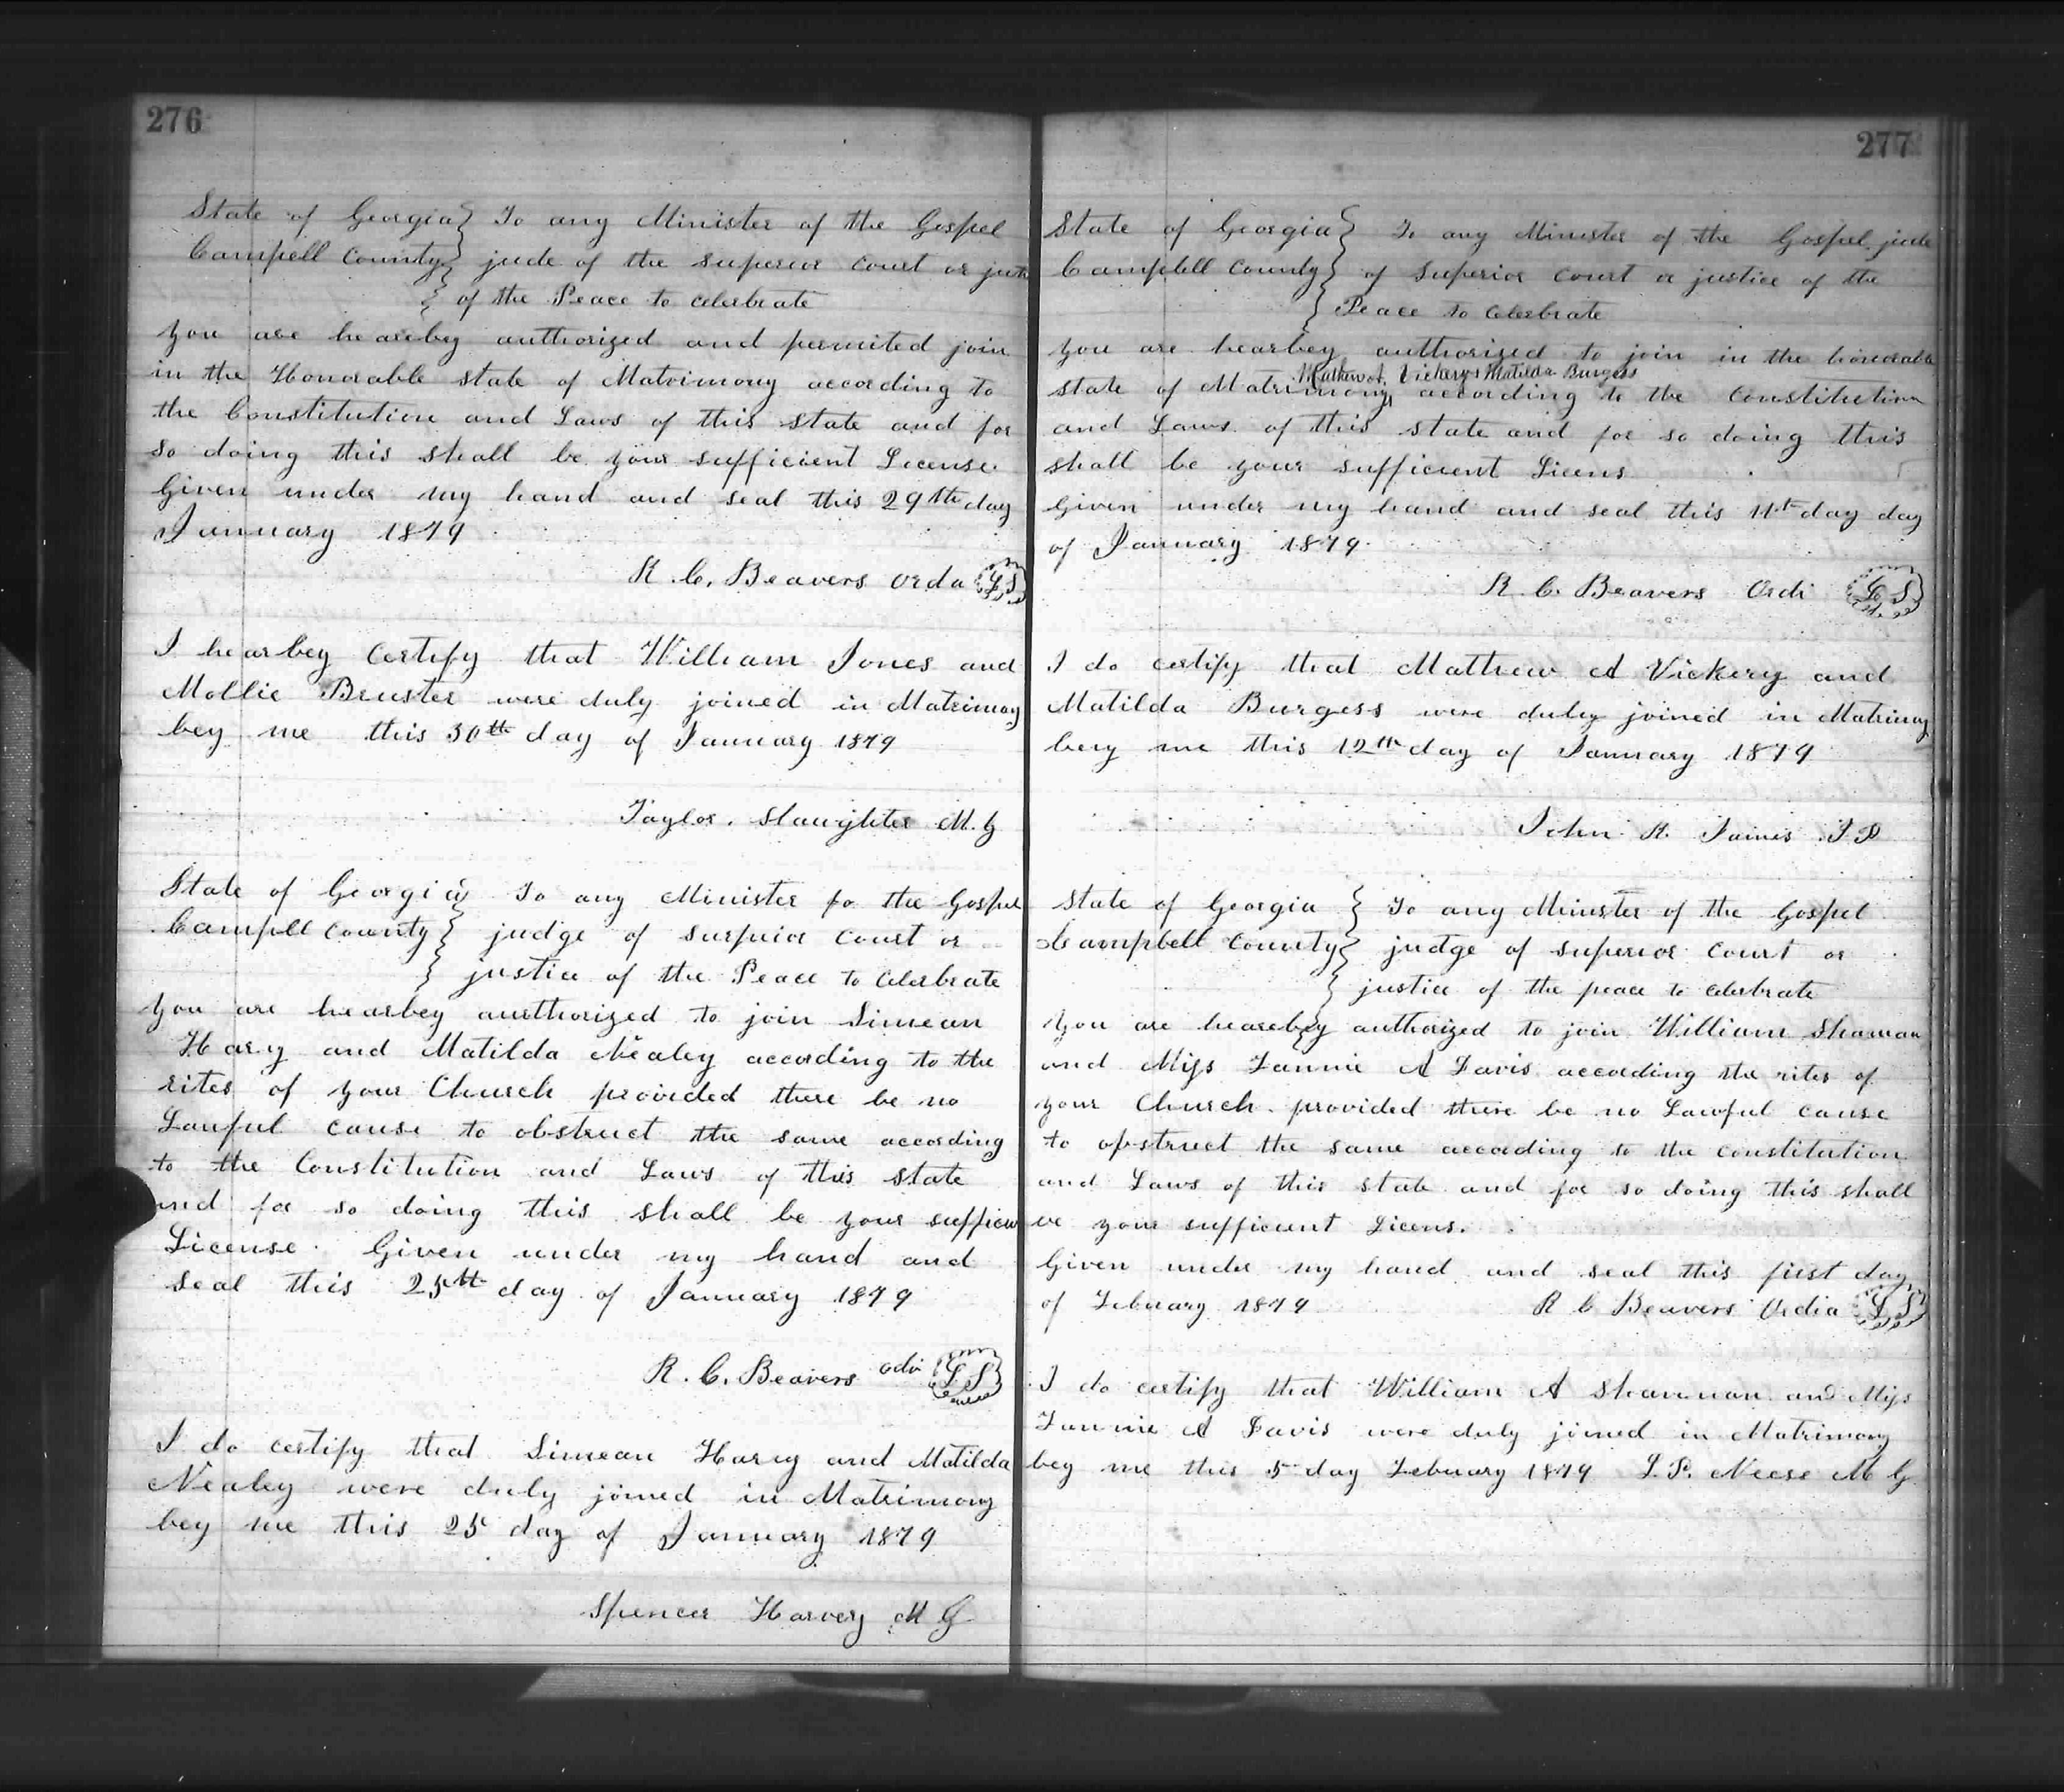 276
State of Georgia } To any Minister of the Gospel
Campell County } jude of the superior court or
} of the Peace to celerbrate
you are hearbey authorized and permited join
in the Honorable state of Matrimony according to
the Constitution and Laws of this state and for
so doing this shall be your sufficient License
Given under my hand and seal this 29th day
January 1879
R. C. Beavers Orda LS
I hearbey certify that William Jones and
Mollie Bruster were duly joined in Matrimoy
bey me this 30th day of January 1879
Taylor. Slaughter M. G
State of Georgia } To any Minister fo the Gospel
Campll County } judge of surpuior court or
} justice of the Peace to celerbrate
you are hearbey aurthorized to join Simean
Harvy and Matilda Nealey according to the
rites of your Church provided there be no
Lauful cause to obstruct the same according
to the Constitution and Laws of this state
and for so doing this shall be your sufficien
License. Given under my hand and
seal this 25th day of January 1879
R. C. Beavers odi LS
I do certify that Simean Harvy and Matilda
Nealey were duly joined in Matrimony
bey me this 25 day of January 1879
Spencer Harvey M G
277
State of Georgia } To any Minister of the Gospel jude
Campbell County } of Superior court or justice of the
} Peace to celerbrate
you are hearbey authorized to join in the honorable
Mathew A. Vickery & Matilda Burgess
state of Matrimony, according to the constitution
and Laws of this state and for so doing this
shall be your sufficient Licens
Given under my hand and seal this 11th day day
of January 1879
R. C. Beavers Ordi LS
I do certify that Mathew A Vickery and
Matilda Burgess were duley joined in Matrimoy
bery me this 12th day of January 1879
John R. James J. P
State of Georgia } To any Minister of the Gospel
Campbell County } judge of superior court or
} justice of the peace to celerbrate
you are hearebey authorized to join William Shaman
and Miss Fannie A Davis according the rites of
your Church. provided there be no Lawful cause
to obstruct the same according to the constitution
and Laws of this state and for so doing this shall
be your sufficient Licens.
Given under my hand and seal this first day
of Febuary 1879 R C Beavers Ordia LS
I do certify that William A Shaveman and Miss
Fannie A Davis were duly joined in Matrimony
bey me this 5 day Febuary 1879 L. P. Neese M G